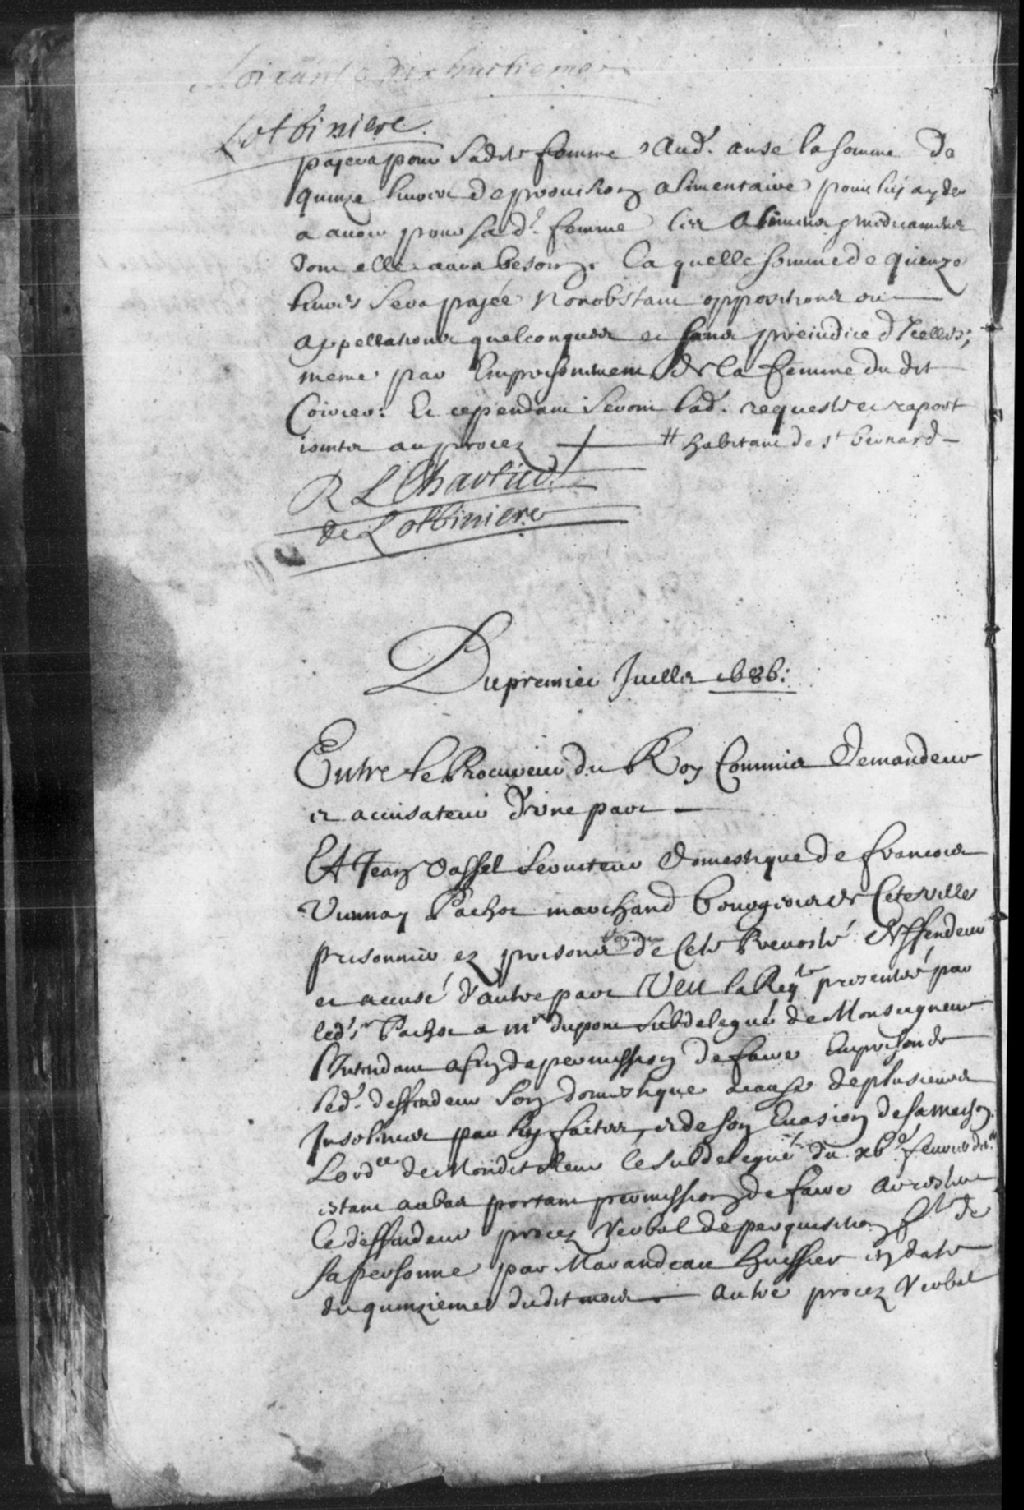 Soixante dix huitieme
Lotbiniere.
payera pour Sadite femme aud. ausé la somme de
quinze livres de provision alimentaire pour luy ayder
a avoir pour sa d.e femme les Alimens & medicamens
dont elle aura besoin. La quelle somme de quinze
livres sera payée Nonobstant oppositions ou
appellations quelconques et sans prejudice d'Icelles,
meme par Emprisonnement de la femme du dit
Et cependant seront lad. requeste et raport
jointes au procez # habitant de st bernard
R L Chartier
de Lotbiniere
Du premier Juillet 1686:
Entre le Procureur du Roy Commis Demandeur
et accusateur d'vne part
Et Jean Vassel serviteur domestique de francois
Viennay Pachot marchand bourgeois de Cete ville
prisonnier ez prisons de Cete Prevosté deffendeur
et accusé d'autre part Veu la Reqte presentée par
led. sr Pachot a mr dupont subdelegué de Monseigneur
l'Intendant afin de permission de faire Emprisonner
led. deffendeur son domestique a cause de plusieurs
Insolences par luy faites, et de son Evasion de sa maison
L'ord.ce de Mondit sieur le subdelegué du xb.e fevrier d.er
estant au bas portant permission de faire arrester
le deffendeur procez Verbal de perquisition f.te de
sa personne par Marandeau huissier en date
du quinzieme dudit mois Autre procez Verbal